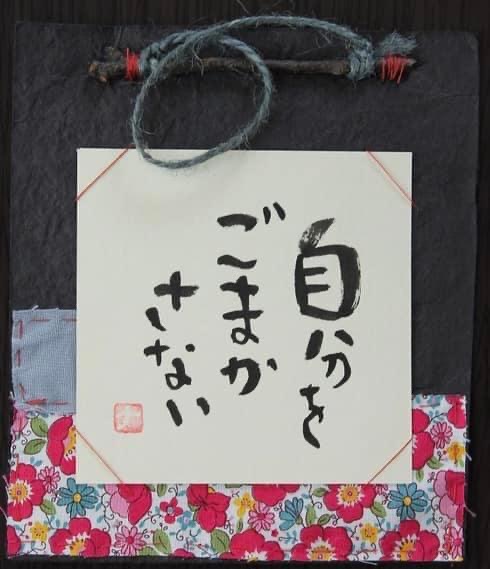 自分を
ごまか
さない